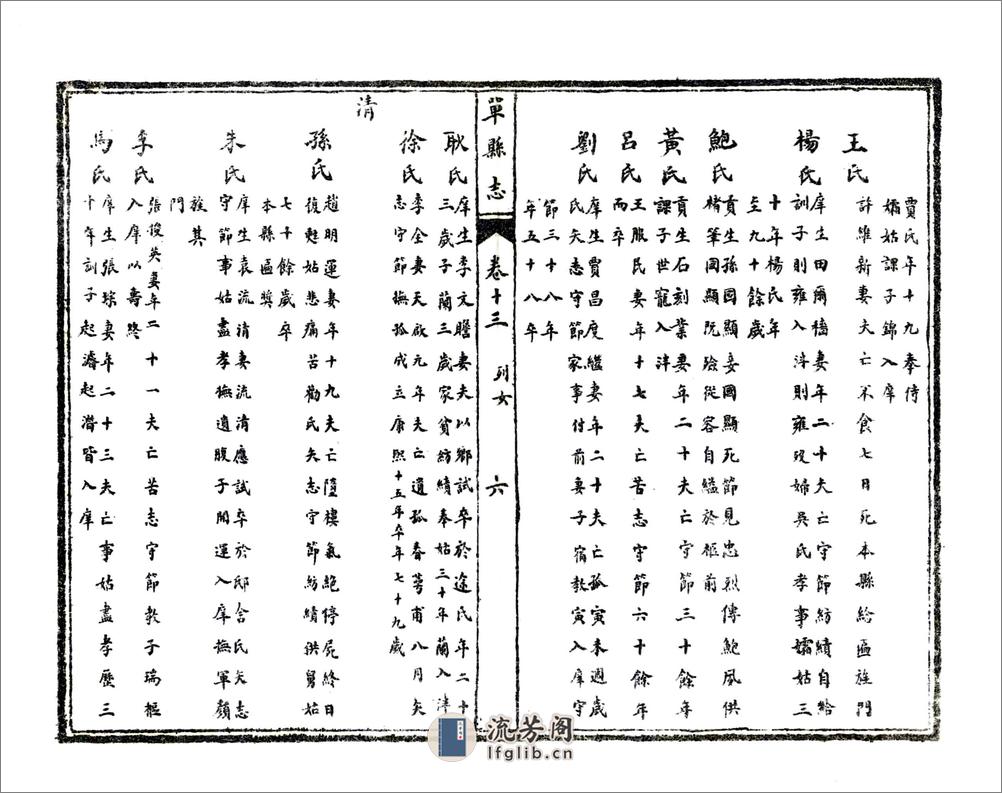 賈氏年十九奉侍
孀姑課子錦入庠
王氏
許維新妻夫亡不食七日死本縣給匾旌門
楊氏
庠生田爾穡妻年二十夫亡守節紡績自給
訓子則雍入泮則雍歿婦吳氏孝事孀姑三
十年楊氏年
至九十餘歲
鮑氏
貢生孫國顯妾國顯死節見忠烈傳鮑夙供
楮筆國顯阮險從容自縊於柩前
黃氏
貢生石刻業妻年二十夫亡守節三十餘年
課子世寵入泮
呂氏
王服民妻年十七夫亡苦志守節六十餘年
而卒
劉氏
庠生賈昌度繼妻年二十夫亡孤寅未週歲
氏矢志守節家事付前妻子宿教寅入庠守
節三十八年
年五十八卒
單縣志 卷十三 列女 六
耿氏
庠生李文瞻妻夫以鄉試卒於途氏年二十
三歲子蘭三歲家貧紡績奉姑三十年蘭入泮
徐氏
李全妻天啟元年夫亡遺孤春等甫八月矢
志守節撫孤成立康熙十五年卒年七十九歲
清
孫氏
趙明運妻年十九夫亡墮樓氣絕停屍終日
復甦姑悲痛苦勸氏矢志守節紡績供舅姑
七十餘歲卒
本縣匾獎
朱氏
庠生袁流清妻流清應試卒於邸舍氏矢志
守節事姑盡孝撫遺腹子開運入庠撫軍顏
旌其
門
李氏
張俊英妻年二十一夫亡苦志守節教子瑞樞
入庠以壽終
馬氏
庠生張琮妻年二十三夫亡事姑盡孝歷三
十年訓子起濬起潛皆入庠
流芳阁
lfglib.cn